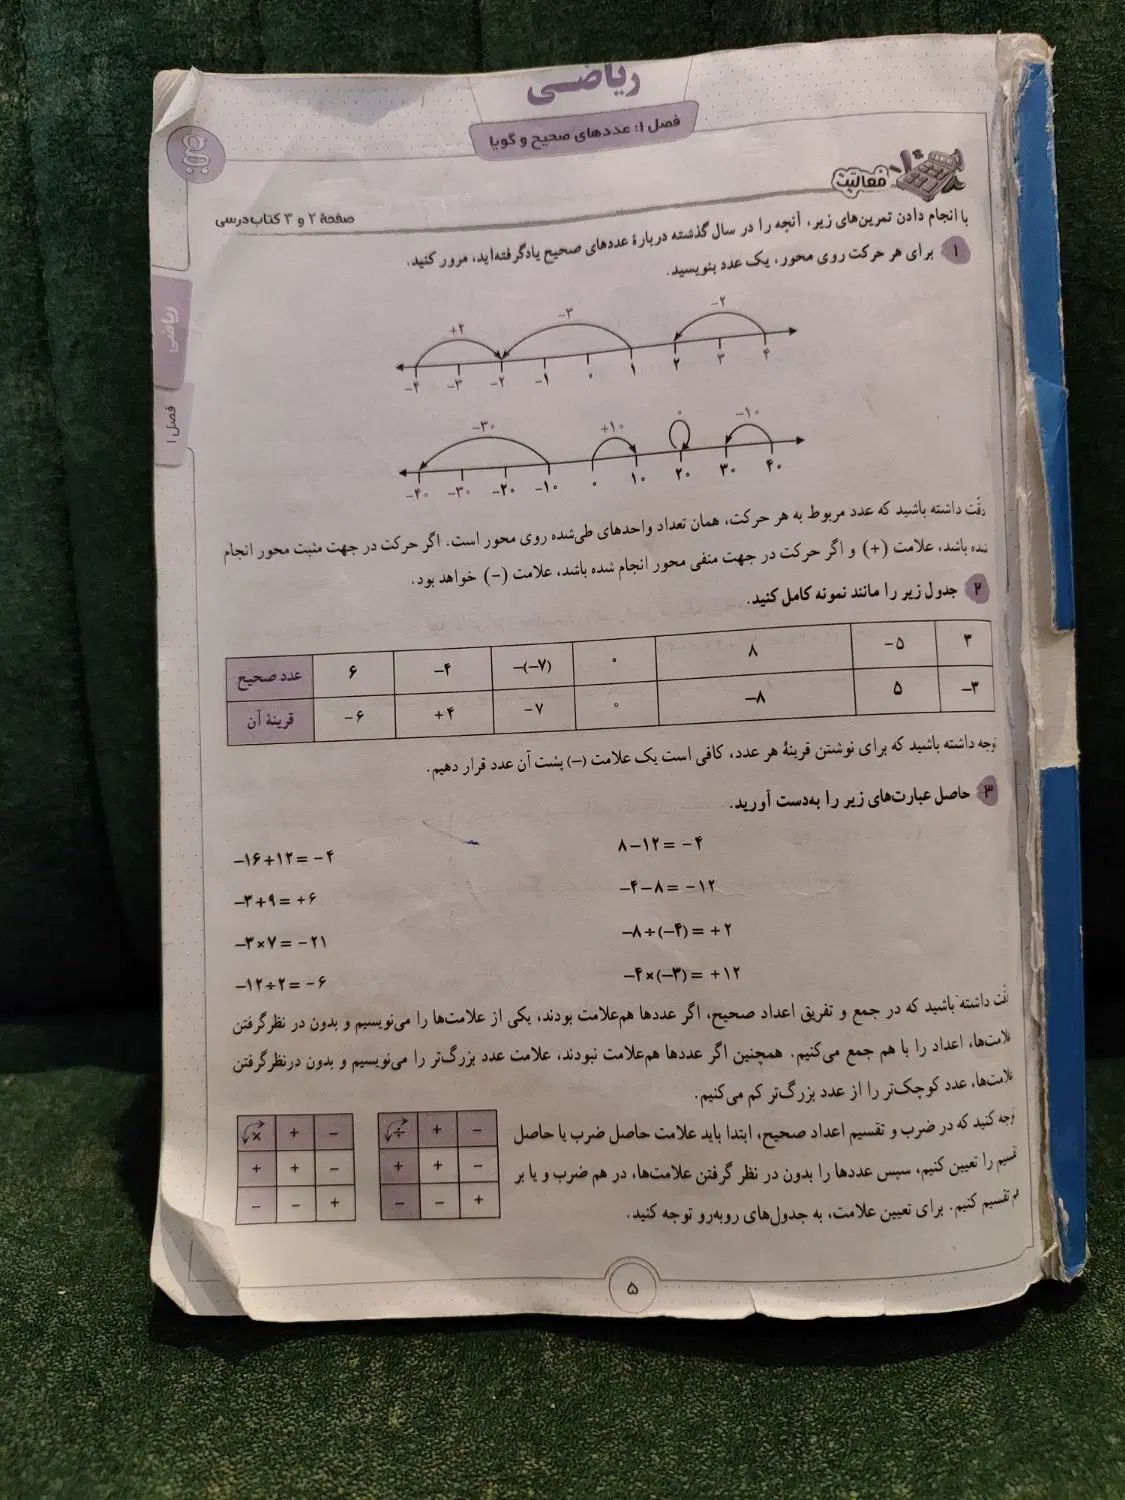 ریاضی
فصل ۱: عددهای صحیح و گویا
فعالیت
صفحهٔ ۲ و ۳ کتاب درسی
با انجام دادن تمرین‌های زیر، آنچه را در سال گذشته دربارهٔ عددهای صحیح یادگرفته‌اید، مرور کنید.
۱ برای هر حرکت روی محور، یک عدد بنویسید.
ریاضی
فصل ۱
+۲ −۳ −۲
−۴ −۳ −۲ −۱ ۰ ۱ ۲ ۳ ۴
−۳۰ +۱۰ ۰ −۱۰
−۴۰ −۳۰ −۲۰ −۱۰ ۰ ۱۰ ۲۰ ۳۰ ۴۰
دقّت داشته باشید که عدد مربوط به هر حرکت، همان تعداد واحدهای طی‌شده روی محور است. اگر حرکت در جهت مثبت محور انجام
شده باشد، علامت (+) و اگر حرکت در جهت منفی محور انجام شده باشد، علامت (−) خواهد بود.
۲ جدول زیر را مانند نمونه کامل کنید.
عدد صحیح ۶ −۴ −(−۷) ۰ ۸ −۵ ۳
قرینهٔ آن −۶ +۴ −۷ ۰ −۸ ۵ −۳
توجه داشته باشید که برای نوشتن قرینهٔ هر عدد، کافی است یک علامت (−) پشت آن عدد قرار دهیم.
۳ حاصل عبارت‌های زیر را به‌دست آورید.
۸−۱۲= −۴
−۱۶+۱۲= −۴
−۴−۸= −۱۲
−۳+۹= +۶
−۸÷(−۴)= +۲
−۳×۷= −۲۱
−۴×(−۳)= +۱۲
−۱۲÷۲= −۶
دقّت داشته باشید که در جمع و تفریق اعداد صحیح، اگر عددها هم‌علامت بودند، یکی از علامت‌ها را می‌نویسیم و بدون در نظرگرفتن
علامت‌ها، اعداد را با هم جمع می‌کنیم. همچنین اگر عددها هم‌علامت نبودند، علامت عدد بزرگ‌تر را می‌نویسیم و بدون درنظرگرفتن
علامت‌ها، عدد کوچک‌تر را از عدد بزرگ‌تر کم می‌کنیم.
توجه کنید که در ضرب و تقسیم اعداد صحیح، ابتدا باید علامت حاصل ضرب یا حاصل
تقسیم را تعیین کنیم، سپس عددها را بدون در نظر گرفتن علامت‌ها، در هم ضرب و یا بر
هم تقسیم کنیم. برای تعیین علامت، به جدول‌های روبه‌رو توجه کنید.
÷ + −
+ + −
− − +
× + −
+ + −
− − +
۵